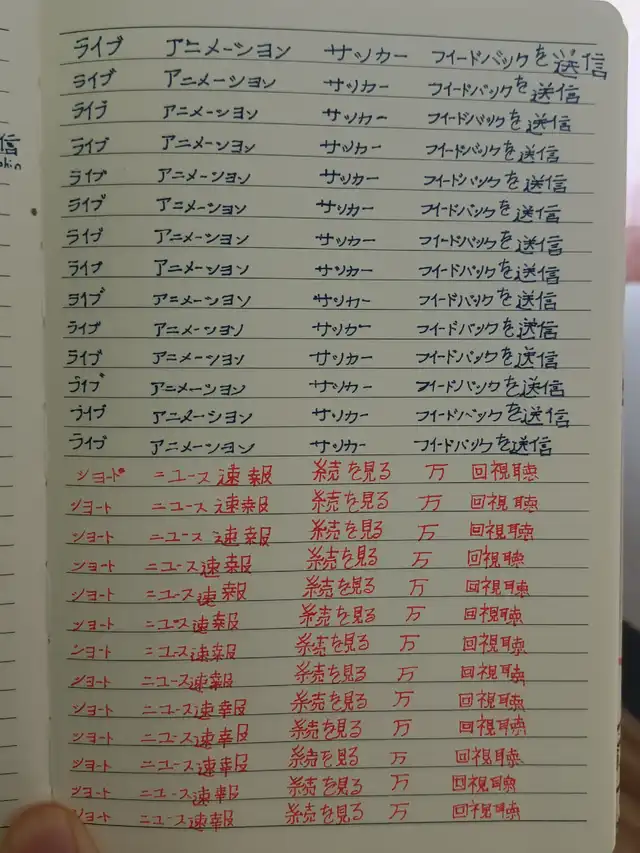 信
ライブ アニメーション サッカー フィードバックを送信
ライブ アニメーション サッカー フィードバックを送信
ライブ アニメーション サッカー フィードバックを送信
ライブ アニメーション サッカー フィードバックを送信
ライブ アニメーション サッカー フィードバックを送信
ライブ アニメーション サッカー フィードバックを送信
ライブ アニメーション サッカー フィードバックを送信
ライブ アニメーション サッカー フィードバックを送信
ライブ アニメーション サッカー フィードバックを送信
ライブ アニメーション サッカー フィードバックを送信
ライブ アニメーション サッカー フィードバックを送信
ライブ アニメーション サッカー フィードバックを送信
ライブ アニメーション サッカー フィードバックを送信
ライブ アニメーション サッカー フィードバックを送信
ショート ニュース速報 続を見る 万 回視聴
ショート ニュース速報 続を見る 万 回視聴
ショート ニュース速報 続を見る 万 回視聴
ショート ニュース速報 続を見る 万 回視聴
ショート ニュース速報 続を見る 万 回視聴
ショート ニュース速報 続を見る 万 回視聴
ショート ニュース速報 続を見る 万 回視聴
ショート ニュース速報 続を見る 万 回視聴
ショート ニュース速報 続を見る 万 回視聴
ショート ニュース速報 続を見る 万 回視聴
ショート ニュース速報 続を見る 万 回視聴
ショート ニュース速報 続を見る 万 回視聴
ショート ニュース速報 続を見る 万 回視聴